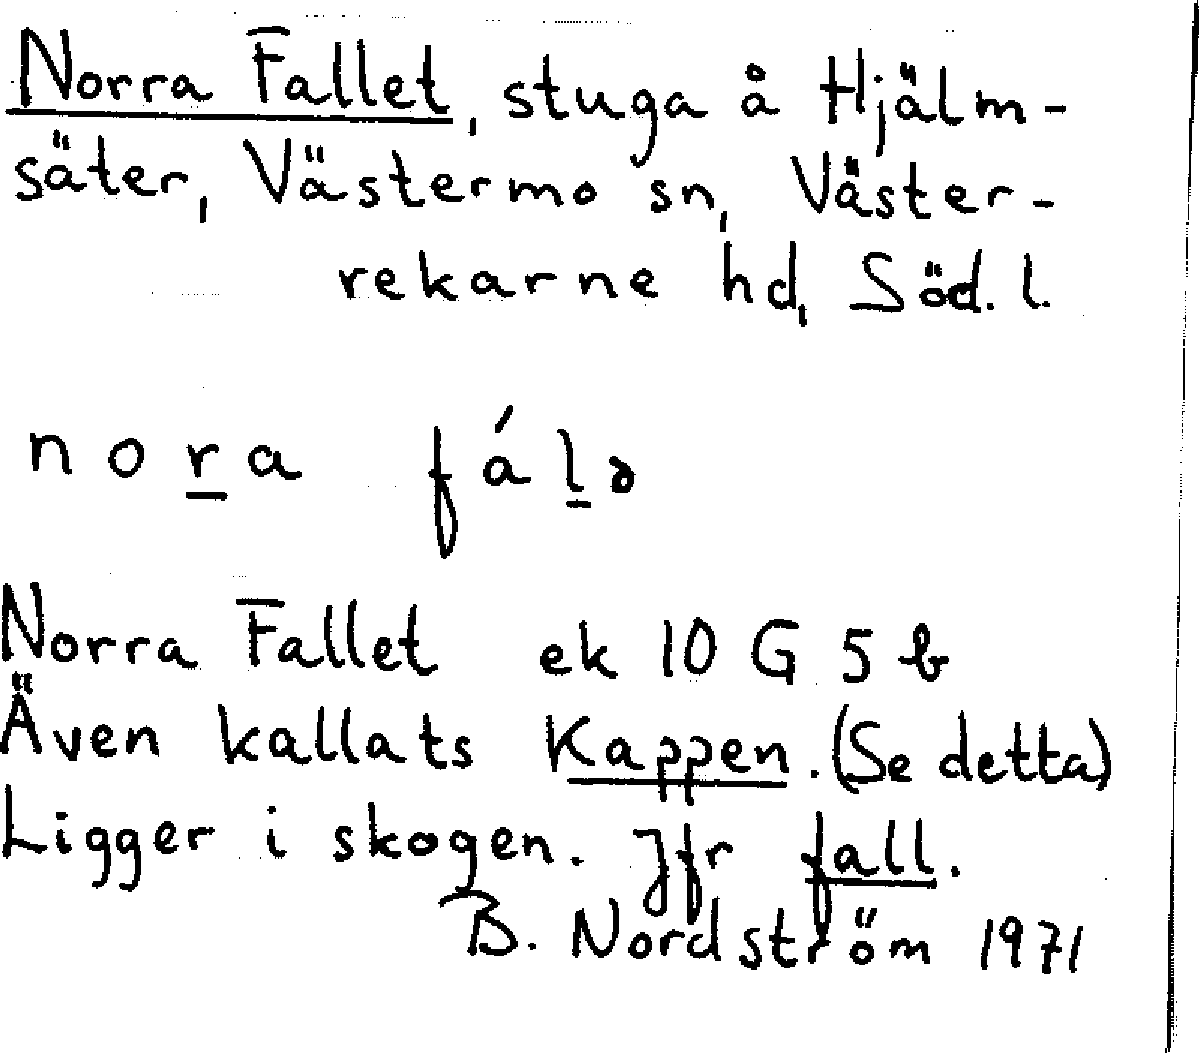 Norra Fallet, stuga å Hjälm-
säter, Västermo sn, Väster-
rekarne hd, Söd. l.
nor̲a fál̲ə
Norra Fallet ek 10 G 5 b
Även kallats Kappen. (Se detta)
Ligger i skogen. Jfr fall.
B. Nordström 1971